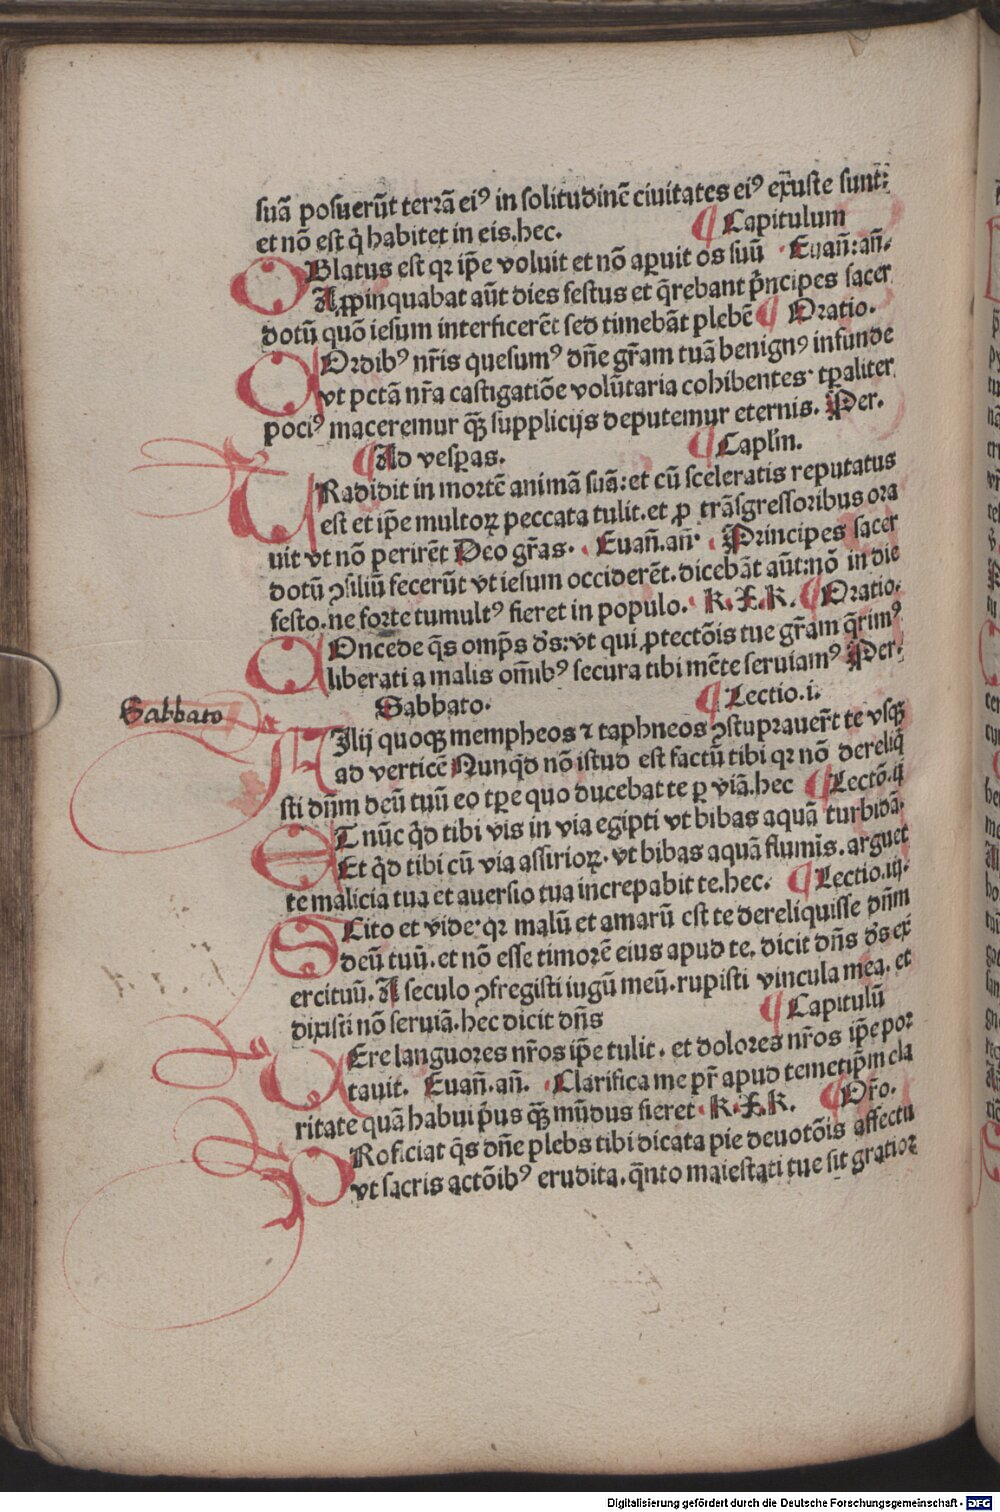 suā posuerūt terrā eiꝰ in solitudinē ciuitates eiꝰ exuste sunt:
et nō est q̇ habitet in eis.hec. ¶ Capitulum
OBlatus est qꝛ ip̄e voluit et nō aꝑuit os suū Euan̄:an̄.
Aꝓpinquabat aūt dies festus et q̄rebant p̄ncipes sacer
dotū quō iesum interficerēt sed timebāt plebē ¶ Oratio.
COrdibꝰ nr̄is quesumꝰ dn̄e gr̄am tuā benignꝰ infunde
vt pctā nr̄a castigatiōe volūtaria cohibentes· tꝑaliter
pociꝰ maceremur qꝫ supplicijs deputemur eternis. Per.
¶ Ad vesꝑas. ¶ Caplm̄.
TRadidit in mortē animā suā:et cū sceleratis reputatus
est et ip̄e multoꝝ peccata tulit.et ꝓ trāsgressoribus ora
uit vt nō perirēt Deo gr̄as. Euan̄.an̄· Principes sacer
dotū ꝯsiliū fecerūt vt iesum occiderēt.dicebāt aūt:nō in die
festo.ne forte tumultꝰ fieret in populo. k.x.k. ¶ Oratio.
COncede q̄s omp̄s ds̄:vt qui ꝓtectōis tue gr̄am q̄rimꝰ
liberati a malis om̄ibꝰ secura tibi mēte seruiamꝰ Per.
Sabbato. ¶ Lectio.i.
Sabbato
FIlij quoqꝫ mempheos ⁊ taphneos ꝯstuprauer̄t te vsqꝫ
ad verticē Nunq̇d nō istud est factū tibi qꝛ nō dereliq̇
sti dn̄m deū tuū eo tꝑe quo ducebat te ꝑ viā.hec ¶ Lectō.ij
ET nūc q̇d tibi vis in via egipti vt bibas aquā turbidā.
Et q̇d tibi cū via assirioꝝ. vt bibas aquā flumīs. arguet
te malicia tua et auersio tua increpabit te.hec. ¶ Lectio.iij.
SCito et vide:qꝛ malū et amarū est te dereliquisse dn̄m
deū tuū.et nō esse timorē eius apud te. dicit dn̄s ds̄ ex̄
ercituū. A seculo ꝯfregisti iugū meū.rupisti vincula mea. et
dixisti nō seruiā.hec dicit dn̄s ¶ Capitulū
VEre languores nr̄os ip̄e tulit. et dolores nr̄os ip̄e por
tauit. Euan̄.an̄. Clarifica me pr̄ apud temetip̄m cla
ritate quā habui p̄us qꝫ mūdus fieret k.x.k. ¶ Or̄o.
PRoficiat q̄s dn̄e plebs tibi dicata pie deuotōis affectu
vt sacris actōibꝰ erudita. q̄nto maiestati tue sit gratior
Digitalisierung gefördert durch die Deutsche Forschungsgemeinschaft - DFG